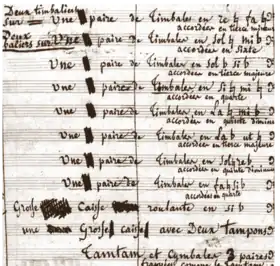 Deux timbaliers
sur Une paire de Timbales en re ♮ fa ♮
accordées en tierce mineure
Deux
baliers sur Une paire de Timbales en sol ♮ mi ♭
accordées en sixte
Une paire de Timbales en sol ♮ si ♭
accordées en tierce majeure
Une paire de Timbales en si ♮ mi ♮
accordées en quarte
Une paire de Timbales en la ♮ mi ♭
accordées en quinte diminuée
Une paire de Timbales en la ♭ ut ♮
accordées en tierce majeure
Une paire de Timbales en sol re ♭
accordées en quinte diminuée
Une paire de Timbales en fa si ♭
accordées en quarte
Grosse Caisse roulante en si ♭
une Grosse Caisse avec Deux Tampons
Tamtam et Cymbales 3 paires
comme le Tamtam